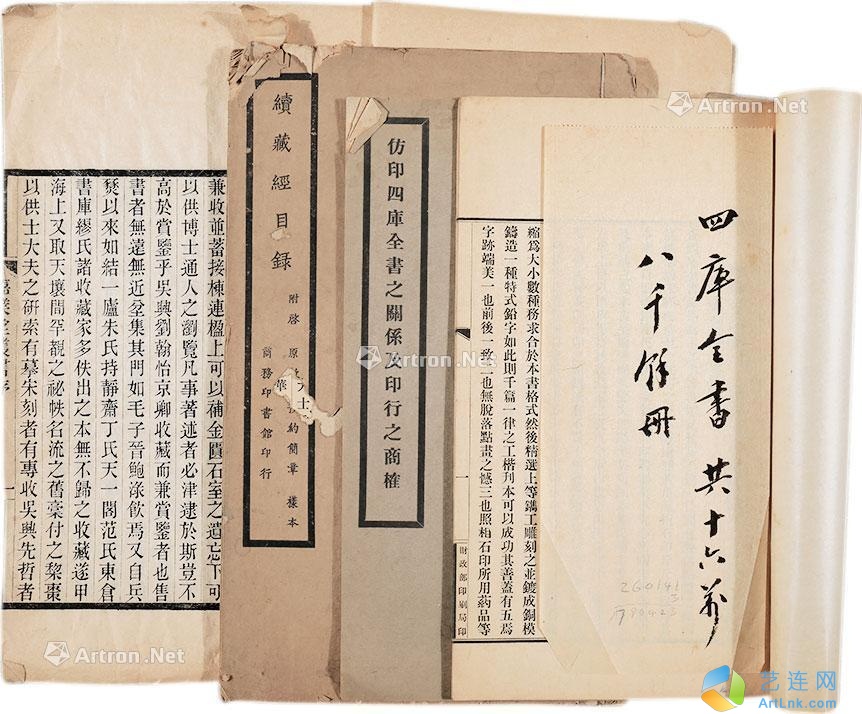 四庫全書共十六萬
八千餘冊
260141
3
縮爲大小數種務求合於本書格式然後精選上等鐫工雕刻之並鍍成銅模
鑄造一種特式鉛字如此則千篇一律之工楷刊本可以成功其善蓋有五焉
字跡端美一也前後一致二也無脫落點畫之憾三也照相石印所用葯品等
一
財政部印刷局印
仿印四庫全書之關係及印行之商榷
續藏經目録
附啓 原 約簡章 樣本
商務印書館印行
兼收並蓄接棟連楹上可以補金匱石室之遺忘下可
以供博士通人之瀏覽凡事著述者必津逮於斯豈不
高於賞鑒乎吳興劉翰怡京卿收藏而兼賞鑒者也售
書者無遠無近坌集其門如毛子晉鮑淥飲焉又自兵
燹以來如結一廬朱氏持靜齋丁氏天一閣范氏東倉
書庫繆氏諸收藏家多佚出之本無不歸之收藏遂甲
海上又取天壤間罕覯之祕帙名流之舊稾付之棃棗
以供士大夫之研索有摹宋刻者有專收吳興先哲者
嘉業堂叢書序
一
Artron.Net
Artron.Net
Artron.Net
Artron.Net
Artron.Net
艺连网
ArtLnk.com